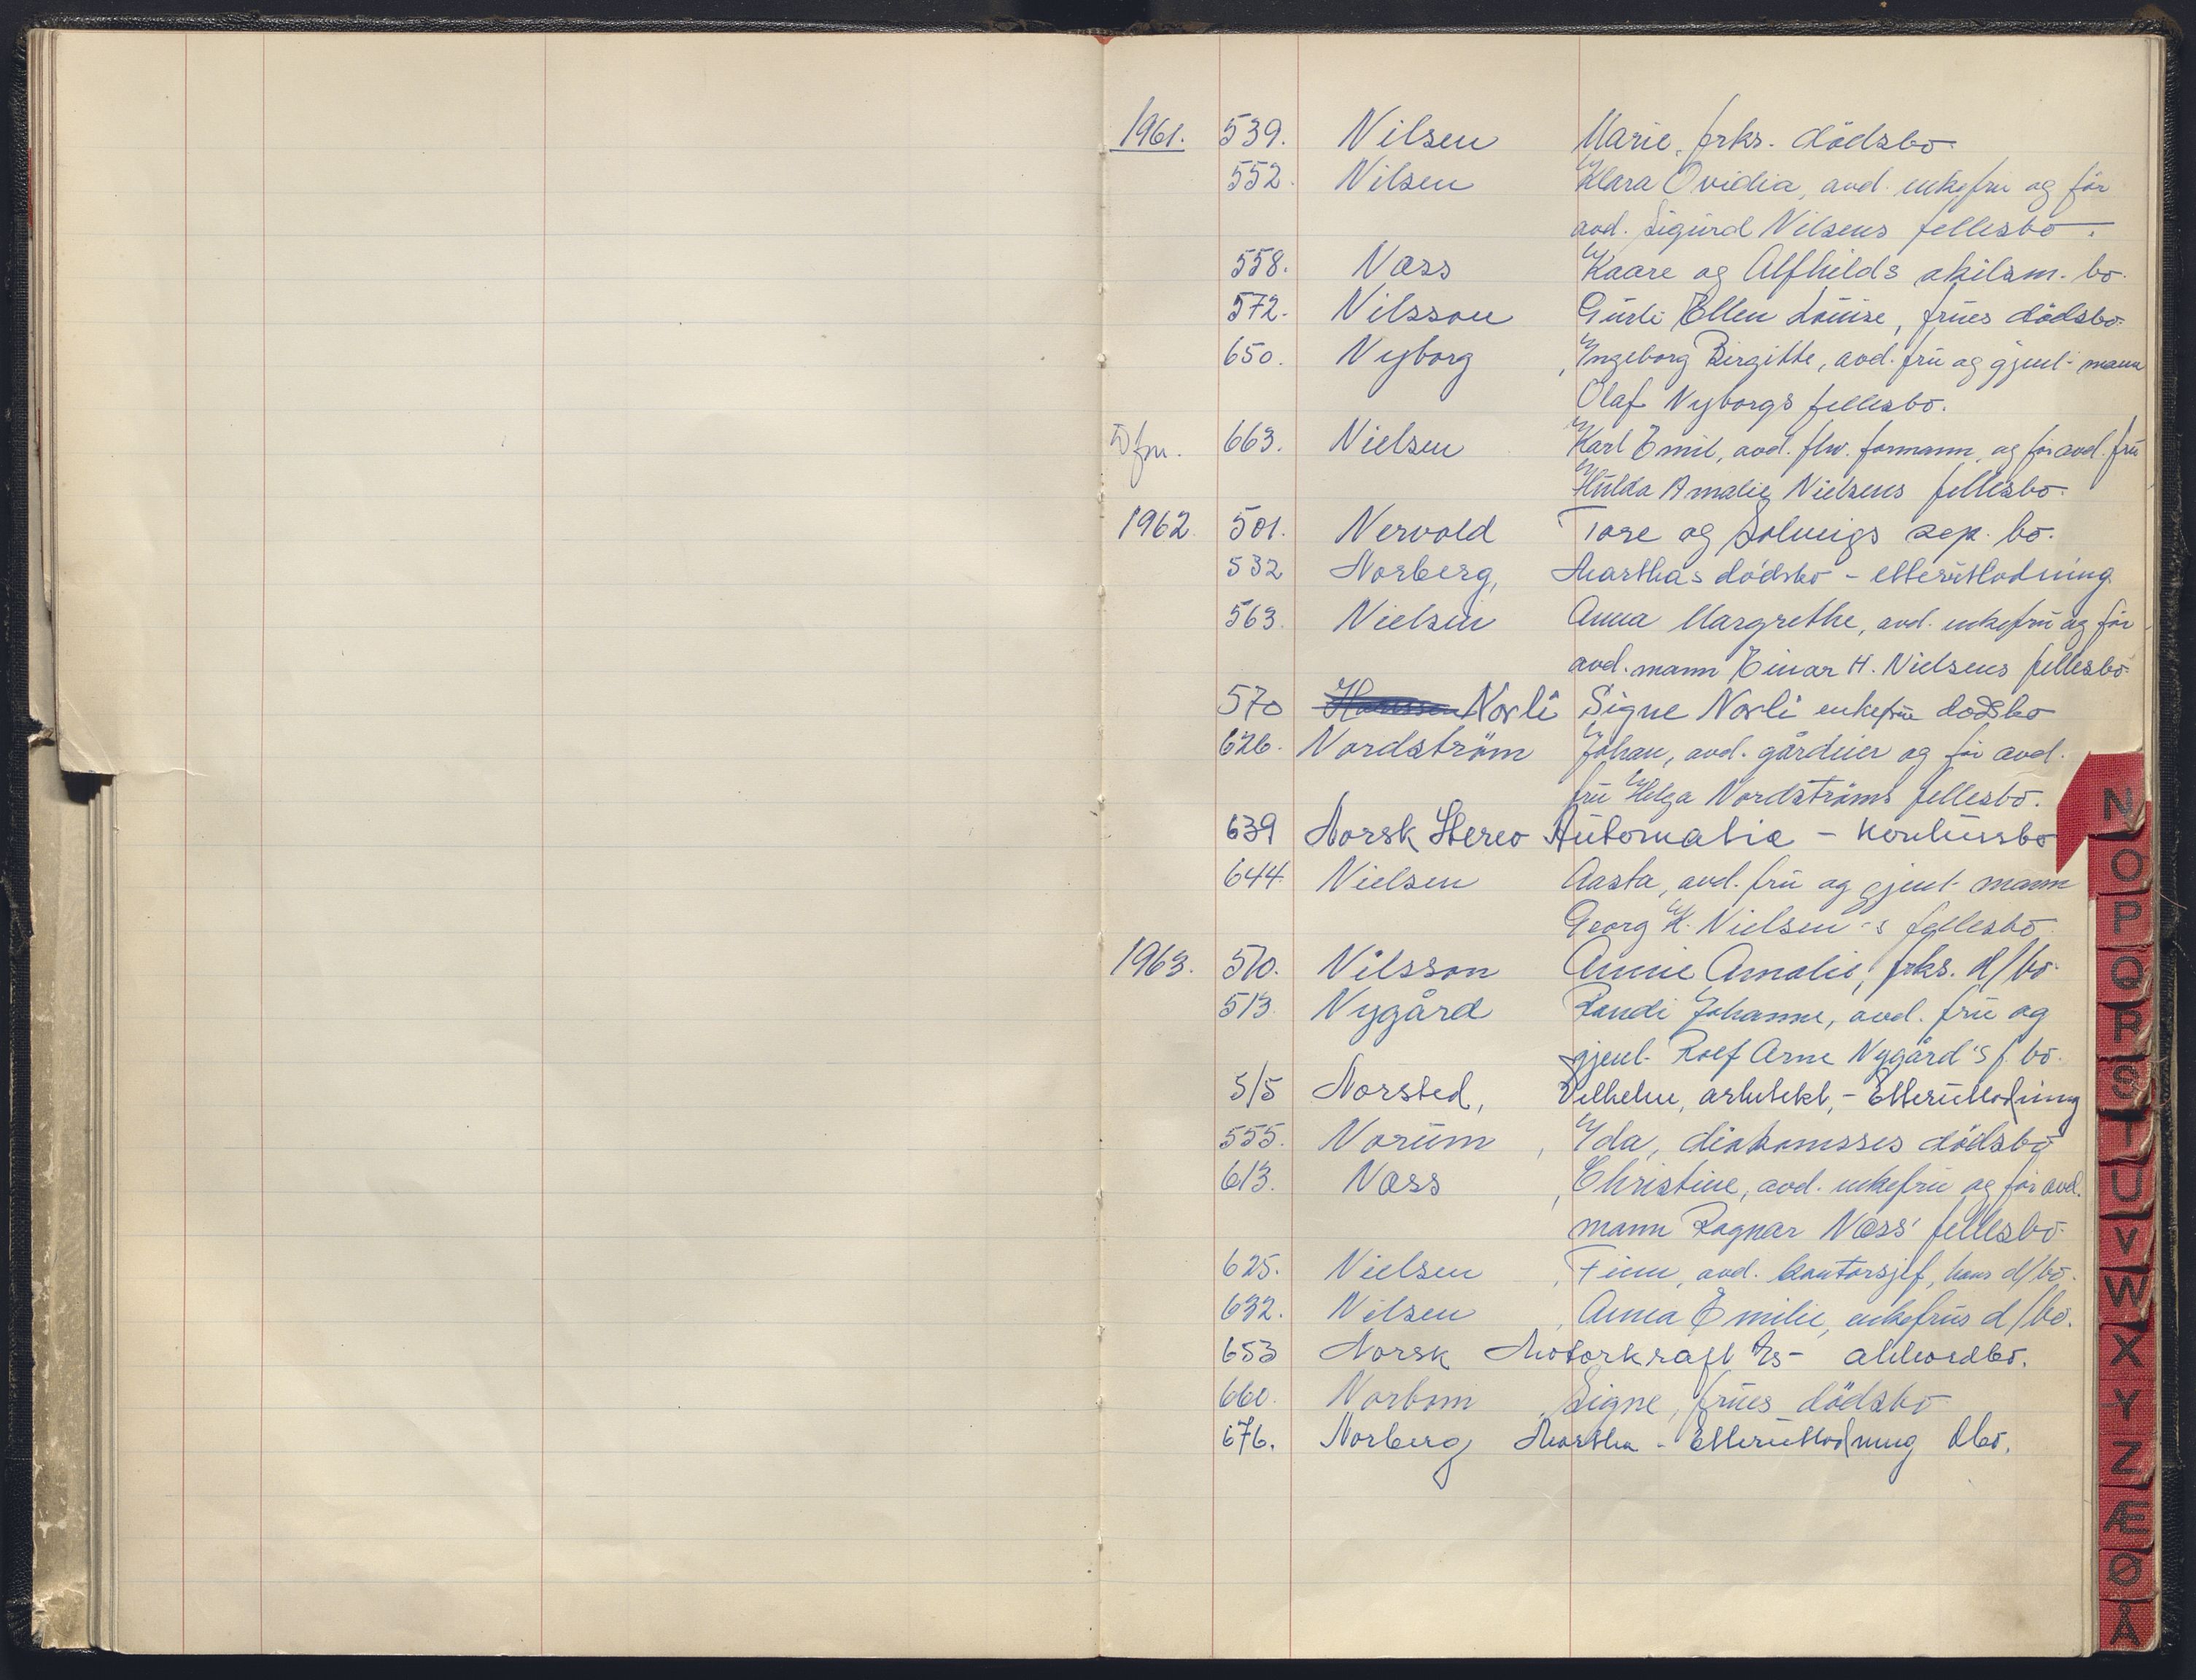 1961. 539. Nilsen Marie, frks. dödsbo.
552. Nilsen Klara Ovidia, avd. enkefru og før
avd. Sigurd Nilsens fellesbo.
558. Næss Kaare og Alfhilds skilsm. bo.
572. Nilsson Gurli Ellen Louise, frues dödsbo.
650. Nyborg , Ingeborg Birgitte, avd. fru og gjenl. mann
Olaf Nyborgs fellesbo.
663. Nielsen Karl Emil, avd. fhv. formann og før avd. fru
Hulda Amalie Nielsens fellesbo.
1962 501. Nervold Tore og Solveigs sep. bo.
532 Norberg, Marthas dödsbo - etterutlodning
563. Nielsen Anna Margrethe, avd. enkefru og før
avd. mann Einar H. Nielsens fellesbo.
570 Norli Signe Norli enkefru dødsbo
626. Nordström Johan, avd. gårdeier og før avd.
fru Helga Nordströms fellesbo.
639 Norsk Stereo Automatic - konkursbo
644. Nielsen Aasta, avd. fru og gjenl. mann
Georg H. Nielsen's fellesbo.
1963. 510. Nilsson Annie Amalie, frks. d/bo.
513. Nygård Randi Johanne, avd. fru og
gjenl. Rolf Arne Nygård's f. bo.
515 Norsted, Vilhelm, arkitekt, - Etterutlodning
555. Norum , Ida, diakonisses dödsbo
613. Næss , Christine, avd. enkefru og før avd.
mann Ragnar Næss' fellesbo.
625. Nielsen , Finn, avd. kontorsjef, hans d/bo.
632. Nilsen , Anna Emilie, enkefrus d/bo.
653 Norsk Motorkraft A/s - akkordbo.
660. Norbom , Signe, frues dödsbo
676. Norberg Martha - Etterutlodning dbo.
N
O
P
Q
R
S
T
U
V
W
X
Y
Z
Æ
Ø
Å